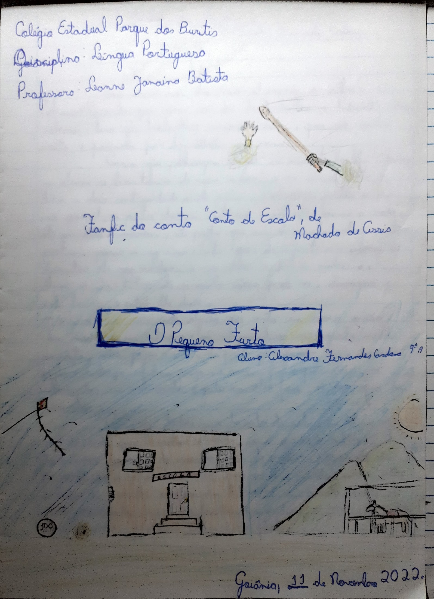 Colégio Estadual Parque dos Buritis
Disciplina: Língua Portuguesa
Professora: Leanne Janaina Batista
Fanfic do conto "Conto de Escola", de
Machado de Assis
O Pequeno Furto
Aluno: Alexandre Fernandes 9° A
Goiânia, 11 de Novembro 2022.